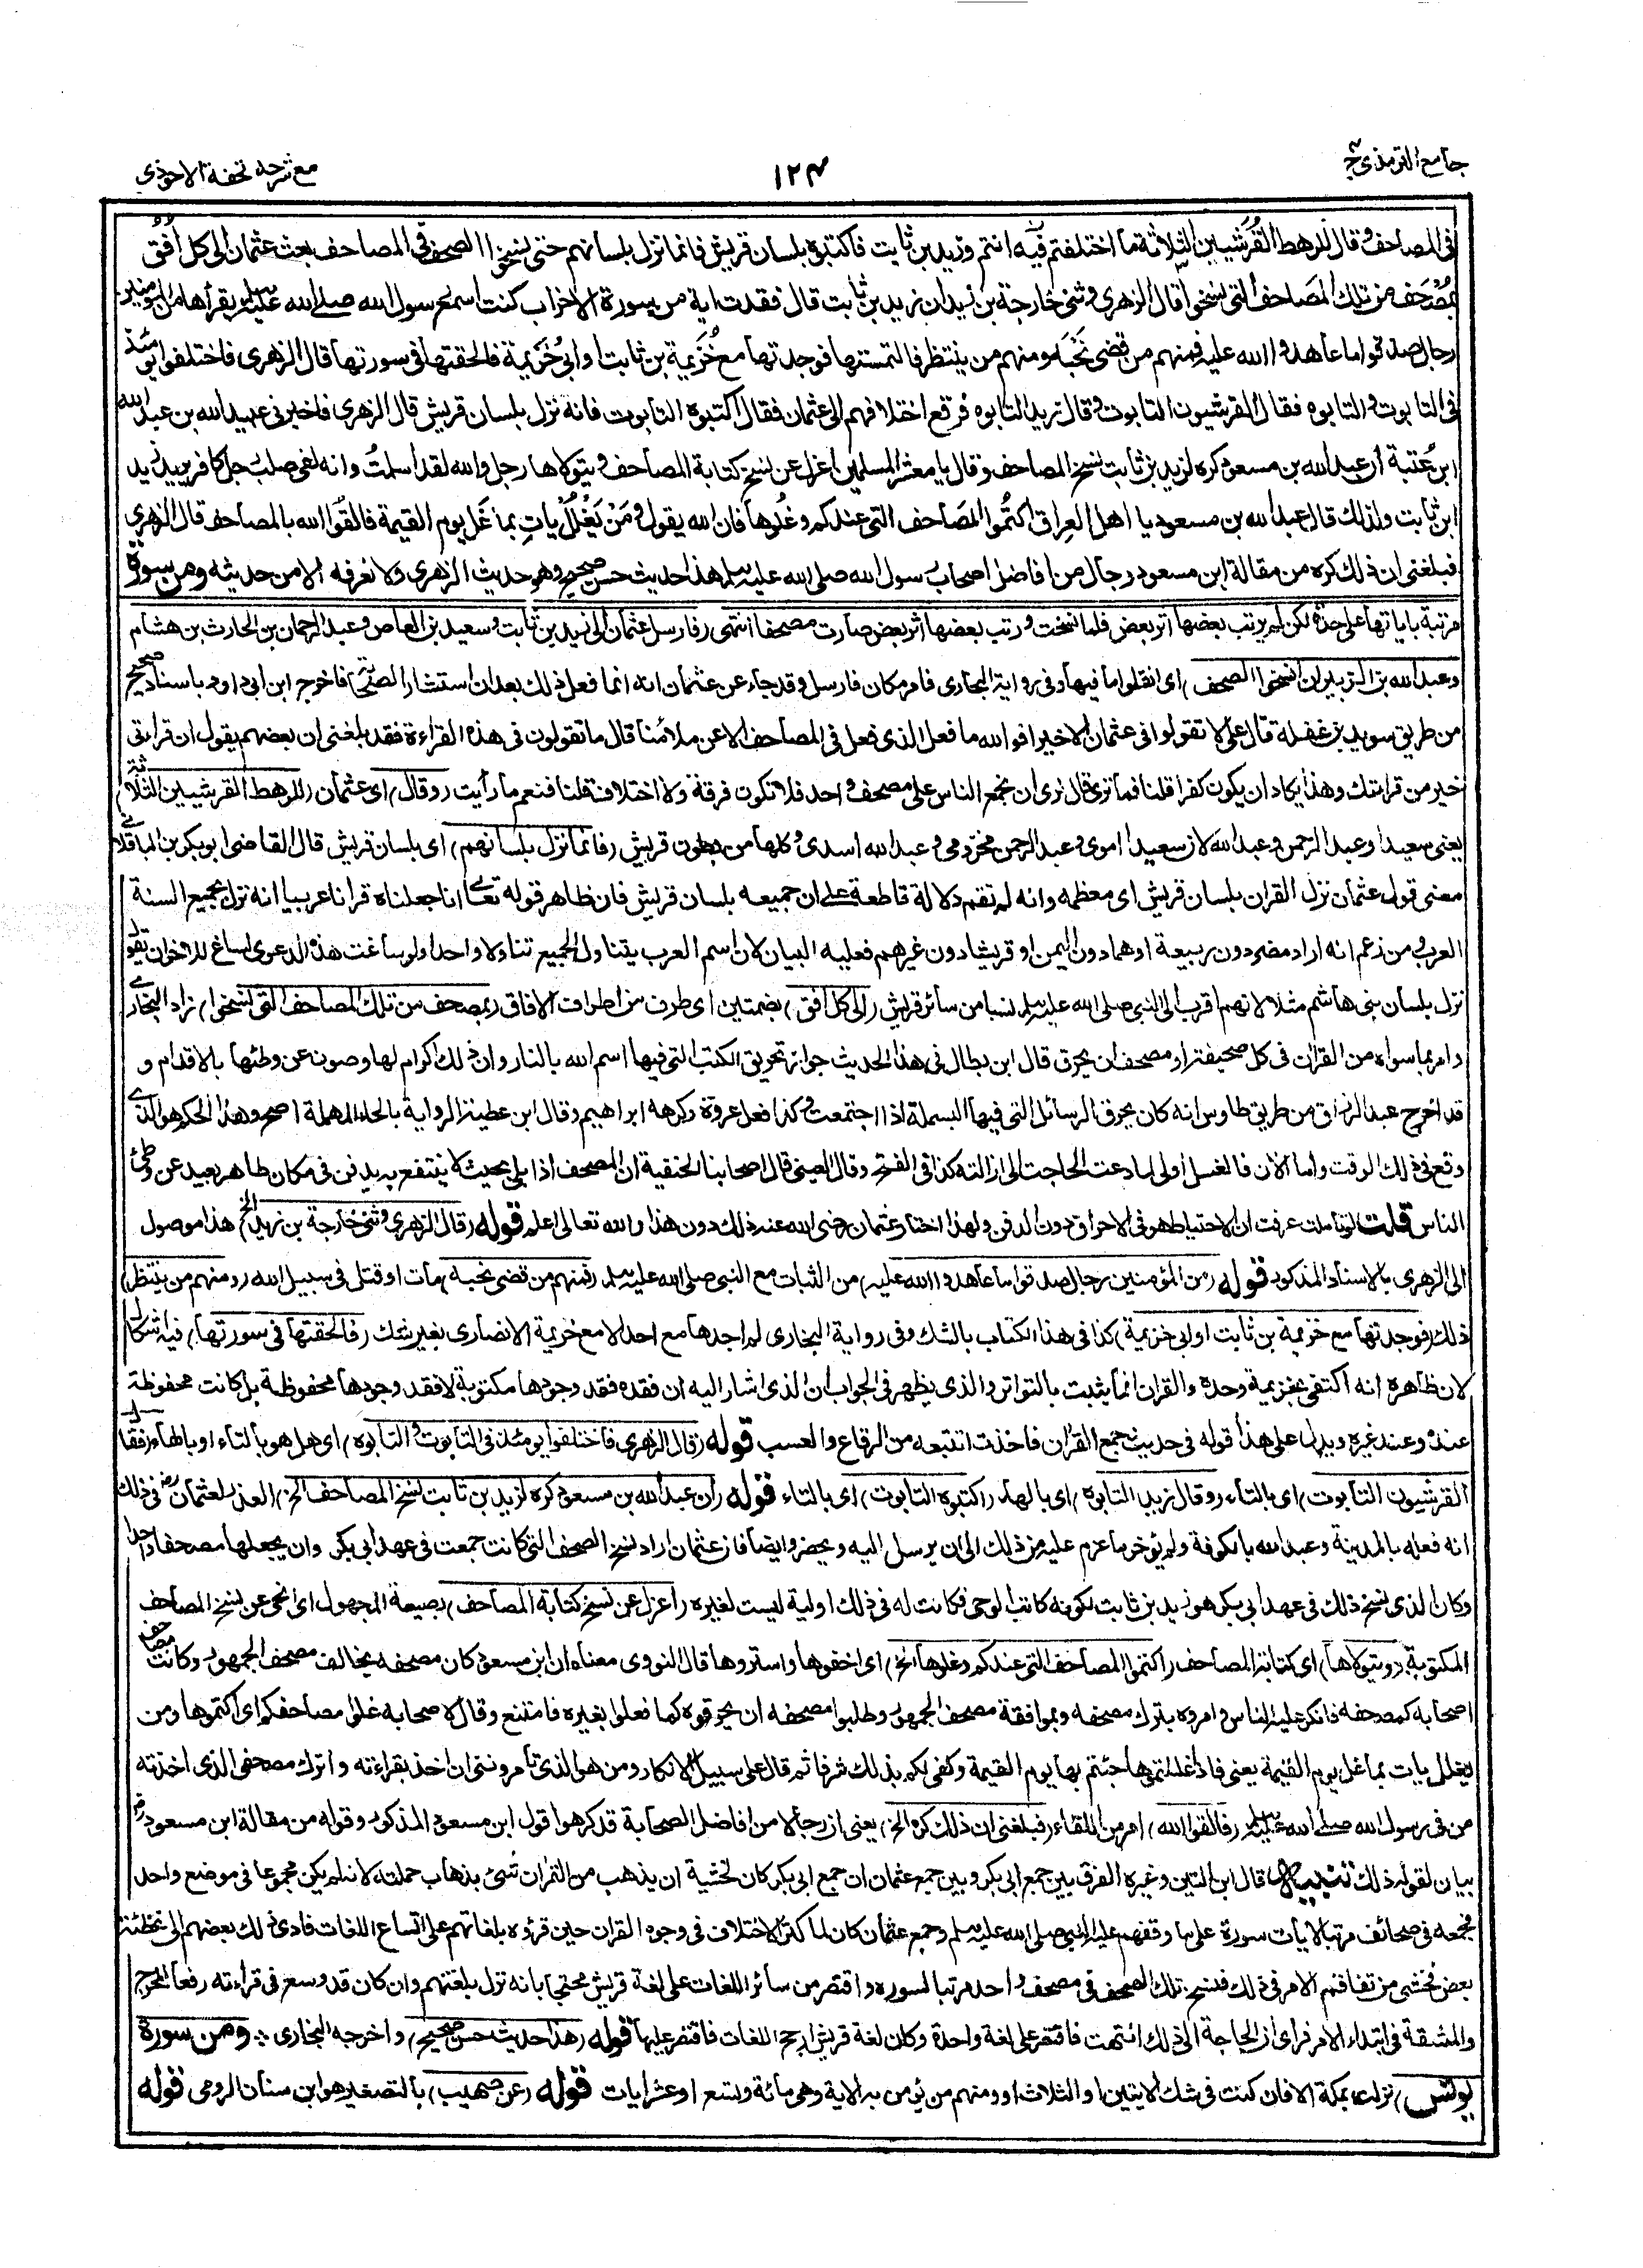 جامع الترمذي ج٤
١٢٤
مع شرحه تحفة الاحوذي
فى المصاحف وقال للرهط القُرَشيين الثلاثة ما اختلفتم فيه انتم وزيد بن ثابت فاكتبوه بلسان قريش فانما نزل بلسانهم حتى نسخوا الصحف فى المصاحف بعث عثمان الى كل اُفُق
بمُصْحَف من تلك المصَاحف التى نسخوا قال الزهرى وثنى خارجة بن زيد ان زيد بن ثابت قال فقدت اية من سورة الاحزاب كنت اسمع رسول الله صلى الله عليه وسلم يقرأها من المؤمنين
رجال صدقوا ما عاهدوا الله عليه فمنهم من قضى نَحْبَه ومنهم من ينتظر فالتمستها فوجدتها مع خُزَيمة بن ثابت او ابى خُزَيمة فالحقتها فى سورتها قال الزهرى فاختلفوا يومئذ
فى التابوت والتابوه فقال القرشيون التابوت وقال زيد التابوه فرفع اختلافهم الى عثمان فقال اكتبوه التابوت فانه نزل بلسان قريش قال الزهرى فاخبرنى عبيد الله بن عبد الله
ابن عُتبة ان عبد الله بن مسعود كره لزيد بن ثابت نسخ المصاحف وقال يا معشر المسلمين اعزل عن نسخ كتابة المصاحف ويتولاها رجل والله لقد اسلمتُ وانه لفى صلب رجل كافر يريد زيد
ابن ثابت ولذلك قال عبد الله بن مسعود يا اهل العِراق اكتُموا المصَاحف التى عندكم وغُلوها فان الله يقول وَمَنْ يَغْلُلْ يات بما غَل يوم القيمة فالقَوُا الله بالمصاحف قال الزهرى
فبلغنى ان ذلك كره من مقالة ابن مسعود رجال من افاضل اصحاب رسول الله صلى الله عليه وسلم هذا حديث حسن صحيح وهو حديث الزهرى ولا نعرفه الا من حديثه ومن سورة
مرتبة باياتها على حدة لكن لم يرتب بعضها اثر بعض فلما نسخت ورتب بعضها اثر بعض صارت مصحفا انتهى (فارسل عثمان الى زيد بن ثابت وسعيد بن العاص وعبد الرحمان بن الحارث بن هشام
وعبد الله بن الزبير ان انسخوا الصحف) اى انقلوا ما فيها وفى رواية البخارى فامر مكان فارسل وقد جاء عن عثمان انه انما فعل ذلك بعد ان استشار الصحابة فاخرج ابن ابى داود باسناد صحيح
من طريق سويد بن غفلة قال على لا تقولوا فى عثمان الا خيرا فوالله ما فعل الذى فعل فى المصاحف الا عن ملأ منا قال ما تقولون فى هذه القراءة فقد بلغنى ان بعضهم يقول ان قراءتى
خير من قراءتك وهذا يكاد ان يكون كفرا قلنا فما ترى قال نرى ان نجمع الناس على مصحف واحد فلا تكون فرقة ولا اختلاف قلنا فنعم ما رأيت (وقال) اى عثمان (للرهط القرشيين الثلاثة)
يعنى سعيدا وعبد الرحمن وعبد الله لان سعيدا اموى وعبد الرحمن مخزومى وعبد الله اسدى وكلها من بطون قريش (فانما نزل بلسانهم) اى بلسان قريش قال القاضى ابو بكر بن الباقلانى
معنى قول عثمان نزل القران بلسان قريش اى معظمه وانه لم تقم دلالة قاطعة على ان جميعه بلسان قريش فان ظاهر قوله تعالى انا جعلناه قرانا عربيا انه نزل بجميع السنة
العرب ومن زعم انه اراد مضر دون ربيعة او هما دون اليمن او قريشا دون غيرهم فعليه البيان لان اسم العرب يتناول الجميع تناولا واحدا ولو ساغت هذه الدعوى لساغ للاخر ان يقول
نزل بلسان بنى هاشم مثلا لانهم اقرب الى النبى صلى الله عليه وسلم نسبا من سائر قريش (الى كل افق) بضمتين اى طرف من اطراف الافاق (بمصحف من تلك المصاحف التى نسخوا) زاد البخارى
وامر بما سواه من القران فى كل صحيفة او مصحف ان يحرق قال ابن بطال فى هذا الحديث جواز تحريق الكتب التى فيها اسم الله بالنار وان ذلك اكرام لها وصون عن وطئها بالاقدام و
قد اخرج عبد الرزاق من طريق طاوس انه كان يحرق الرسائل التى فيها البسملة اذا اجتمعت وكذا فعل عروة وكرهه ابراهيم وقال ابن عطية الرواية بالحاء المهملة اصح وهذا الحكم هو الذى
وقع فى ذلك الوقت واما الان فالغسل اولى لما دعت الحاجة الى ازالته كذا فى الفتح وقال العينى قال اصحابنا الحنفية ان المصحف اذا بلى بحيث لا ينتفع به يدفن فى مكان طاهر بعيد عن وطئ
الناس قلت لو تاملت عرفت ان الاحتياط هو فى الاحراق دون الدفن ولهذا اختار عثمان رضى الله عنه ذلك دون هذا والله تعالى اعلم قوله (قال الزهرى وثنى خارجة بن زيد الخ) هذا موصول
الى الزهرى بالاسناد المذكور قوله (من المؤمنين رجال صدقوا ما عاهدوا الله عليه) من الثبات مع النبى صلى الله عليه وسلم (فمنهم من قضى نحبه) مات او قتل فى سبيل الله (ومنهم من ينتظر)
ذلك (فوجدتها مع خزيمة بن ثابت او ابى خزيمة) كذا فى هذا الكتاب بالشك وفى رواية البخارى لم اجدها مع احد الا مع خزيمة الانصارى بغير شك (فالحقتها فى سورتها) فيه اشكال
لان ظاهره انه اكتفى بخزيمة وحده والقران انما يثبت بالتواتر والذى يظهر فى الجواب ان الذى اشار اليه ان فقده فقد وجودها مكتوبة لا فقد وجودها محفوظة بل كانت محفوظة
عنده وعند غيره ويدل على هذا قوله فى حديث جمع القران فاخذت اتتبعه من الرقاع والعسب قوله (قال الزهرى فاختلفوا يومئذ فى التابوت والتابوه) اى هل هو بالتاء او بالهاء (فقال
القرشيون التابوت) اى بالتاء (وقال زيد التابوه) اى بالهاء (اكتبوه التابوت) اى بالتاء قوله (ان عبد الله بن مسعود كره لزيد بن ثابت نسخ المصاحف الخ) العذر لعثمان رض فى ذلك
انه فعله بالمدينة وعبد الله بالكوفة ولم يؤخر ما عزم عليه من ذلك الى ان يرسل اليه ويحضر وايضا فان عثمان اراد نسخ الصحف التى كانت جمعت فى عهد ابى بكر وان يجعلها مصحفا واحدا
وكان الذى نسخ ذلك فى عهد ابى بكر هو زيد بن ثابت لكونه كاتب الوحى فكانت له فى ذلك اولية ليست لغيره (اعزل عن نسخ كتابة المصاحف) بصيغة المجهول اى انحى عن نسخ المصاحف
المكتوبة (ويتولاها) اى كتابة المصاحف (اكتموا المصاحف التى عندكم وغلوها الخ) اى اخفوها واستروها قال النووى معناه ان ابن مسعود كان مصحفه يخالف مصحف الجمهور وكانت مصاحف
اصحابه كمصحفه فانكر عليه الناس وامروه بترك مصحفه وبموافقة مصحف الجمهور وطلبوا مصحفه ان يحرقوه كما فعلوا بغيره فامتنع وقال لاصحابه غلوا مصاحفكم اى اكتموها ومن
يغلل يات بما غل يوم القيمة يعنى فاذا غللتموها جئتم بها يوم القيمة وكفى لكم بذلك شرفا ثم قال على سبيل الانكار ومن هو الذى تامروننى ان اخذ بقراءته واترك مصحفى الذى اخذته
من فى رسول الله صلى الله عليه وسلم (فالقوا الله) امر من اللقاء (فبلغنى ان ذلك كره الخ) يعنى ان رجالا من افاضل الصحابة قد كرهوا قول ابن مسعود المذكور وقوله من مقالة ابن مسعود رض
بيان لقوله ذلك تنبيه قال ابن التين وغيره الفرق بين جمع ابى بكر وبين جمع عثمان ان جمع ابى بكر كان لخشية ان يذهب من القران شئ بذهاب حملته لانه لم يكن مجموعا فى موضع واحد
فجمعه فى صحائف مرتبا لايات سورة على ما وقفهم عليه النبى صلى الله عليه وسلم وجمع عثمان كان لما كثر الاختلاف فى وجوه القران حين قرؤه بلغاتهم على اتساع اللغات فادى ذلك بعضهم الى تخطئة
بعض فخشى من تفاقم الامر فى ذلك فنسخ تلك الصحف فى مصحف واحد مرتبا لسوره واقتصر من سائر اللغات على لغة قريش محتجا بانه نزل بلغتهم وان كان قد وسع فى قراءته رفعا للحرج
والمشقة فى ابتداء الامر فراى ان الحاجة الى ذلك انتهت فاقتصر على لغة واحدة وكان لغة قريش ارجح اللغات فاقتصر عليها قوله (هذا حديث حسن صحيح) واخرجه البخارى ومن سورة
يونس) نزلت بمكة الا فان كنت فى شك الايتين او الثلاث او ومنهم من يؤمن به الاية وهى مائة وتسع او عشر ايات قوله (عن صهيب) بالتصغير هو ابن سنان الرومى قوله